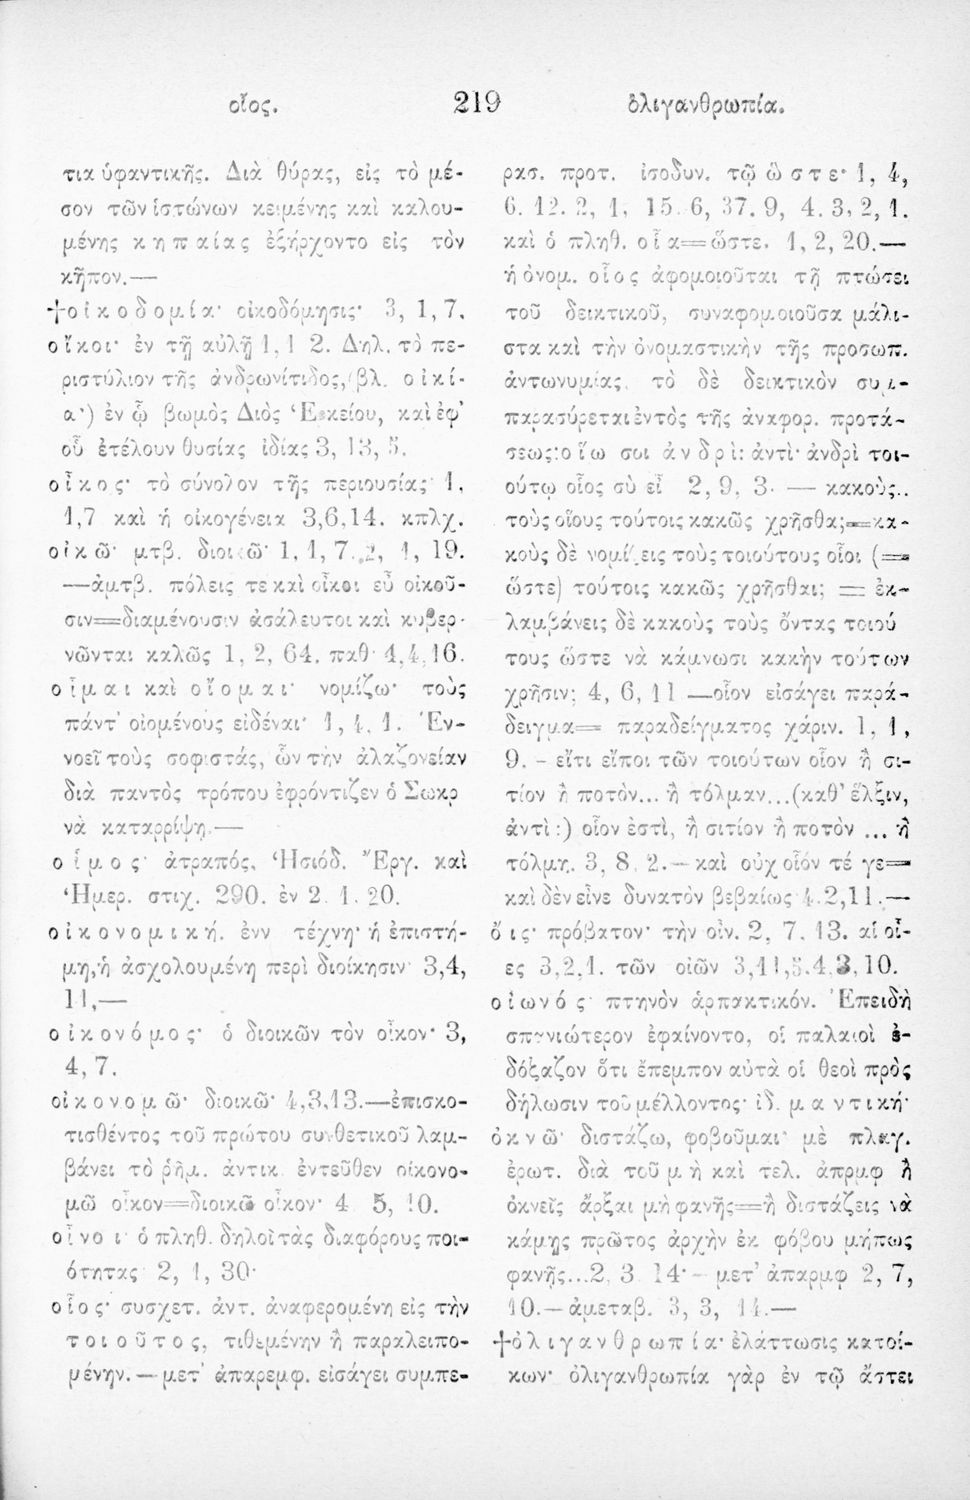 οἷος. 219 ὀλιγανθρωπία.
τια ὑφαντικῆς. Διὰ θύρας, εἰς τὸ μέ-
σον τῶν ἱστώνων κειμένης καὶ καλου-
μένης κηπαίας ἐξήρχοντο εἰς τὸν
κῆπον.—
†οἰκοδομία· οἰκοδόμησις· 3, 1, 7.
οἶκοι· ἐν τῇ αὐλῇ 1, 1 2. Δηλ. τὸ πε-
ριστύλιον τῆς ἀνδρωνίτιδος, (βλ. οἰκί-
α·) ἐν ᾧ βωμὸς Διὸς Ἑρκείου, καὶ ἐφ’
οὗ ἐτέλουν θυσίας ἰδίας 3, 13, 5.
οἶκος· τὸ σύνολον τῆς περιουσίας 1,
1,7 καὶ ἡ οἰκογένεια 3,6,14. κπλχ.
οἰκῶ· μτβ. διοικῶ· 1, 1, 7. 2, 1, 19.
—ἀμτβ. πόλεις τε καὶ οἶκοι εὖ οἰκοῦ-
σιν=διαμένουσιν ἀσάλευτοι καὶ κυβερ-
νῶνται καλῶς 1, 2, 64. παθ· 4,4,16.
οἶμαι καὶ οἴομαι· νομίζω· τοὺς
πάντ’ οἰομένους εἰδέναι· 1, 4, 1. Ἐν-
νοεῖ τοὺς σοφιστάς, ὧν τὴν ἀλαζονείαν
διὰ παντὸς τρόπου ἐφρόντιζεν ὁ Σωκρ
νὰ καταρρίψῃ.—
οἷμος· ἀτραπός, Ἡσιόδ. Ἔργ. καὶ
Ἡμερ. στιχ. 290. ἐν 2. 1. 20.
οἰκονομική. ἐνν τέχνη· ἡ ἐπιστή-
μη, ἡ ἀσχολουμένη περὶ διοίκησιν 3,4,
11,—
οἰκονόμος· ὁ διοικῶν τὸν οἶκον· 3,
4, 7.
οἰκονομῶ· διοικῶ· 4,3,13.—ἐπισκο-
τισθέντος τοῦ πρώτου συνθετικοῦ λαμ-
βάνει τὸ ῥῆμ. ἀντικ. ἐντεῦθεν οἰκονο-
μῶ οἶκον=διοικῶ οἶκον· 4 5, 10.
οἶνοι· ὁ πληθ. δηλοῖ τὰς διαφόρους ποι-
ότητας 2, 1, 30·
οἷος· συσχετ. ἀντ. ἀναφερομένη εἰς τὴν
τοιοῦτος, τιθεμένην ἢ παραλειπο-
μένην.—μετ’ ἀπαρεμφ. εἰσάγει συμπε-
ρασ. προτ. ἰσοδυν. τῷ ὥστε· 1, 4,
6. 12. 2, 1, 15. 6, 37. 9, 4. 3, 2, 1.
καὶ ὁ πληθ. οἷα=ὥστε. 1, 2, 20.—
ἡ ὀνομ. οἷος ἀφομοιοῦται τῇ πτώσει
τοῦ δεικτικοῦ, συναφομοιοῦσα μάλι-
στα καὶ τὴν ὀνομαστικὴν τῆς προσωπ.
ἀντωνυμίας, τὸ δὲ δεικτικὸν συμ-
παρασύρεται ἐντὸς τῆς ἀναφορ. προτά-
σεως: οἵῳ σοι ἀνδρί: ἀντὶ· ἀνδρὶ τοι-
ούτῳ οἷος σὺ εἶ 2, 9, 3. — κακούς..
τοὺς οἵους τούτοις κακῶς χρῆσθαι;=κα-
κοὺς δὲ νομίζεις τοὺς τοιούτους οἷοι (=
ὥστε) τούτοις κακῶς χρῆσθαι; = ἐκ-
λαμβάνεις δὲ κακοὺς τοὺς ὄντας τοιού
τους ὥστε νὰ κάμνωσι κακὴν τούτων
χρῆσιν; 4, 6, 11 —οἷον εἰσάγει παρά-
δειγμα= παραδείγματος χάριν. 1, 1,
9. - εἴ τι εἴποι τῶν τοιούτων οἷον ἢ σι-
τίον ἢ ποτὸν... ἢ τόλμαν...(καθ’ ἕλξιν,
ἀντὶ:) οἷον ἐστὶ, ἢ σιτίον ἢ ποτὸν ... ἢ
τόλμη. 3, 8, 2.—καὶ οὐχ οἷόν τέ γε=
καὶ δὲν εἶνε δυνατὸν βεβαίως 4.2,11.—
ὄις· πρόβατον· τὴν οἶν. 2, 7. 13. αἱ οἶ-
ες 3,2,1. τῶν οἰῶν 3,11,5.4,3,10.
οἰωνός· πτηνὸν ἁρπακτικόν. Ἐπειδὴ
σπανιώτερον ἐφαίνοντο, οἱ παλαιοὶ ἐ-
δόξαζον ὅτι ἔπεμπον αὐτὰ οἱ θεοὶ πρὸς
δήλωσιν τοῦ μέλλοντος· ἰδ. μαντική·
ὀκνῶ· διστάζω, φοβοῦμαι· μὲ πλαγ.
ἐρωτ. διὰ τοῦ μὴ καὶ τελ. ἀπρμφ ἢ
ὀκνεῖς ἄρξαι μὴ φανῇς=ἢ διστάζεις νὰ
κάμῃς πρῶτος ἀρχὴν ἐκ φόβου μήπως
φανῇς...2, 3 14·- μετ’ ἀπαρμφ 2, 7,
10.—ἀμεταβ. 3, 3, 14.—
†ὀλιγανθρωπία· ἐλάττωσις κατοί-
κων· ὀλιγανθρωπία γὰρ ἐν τῷ ἄστει